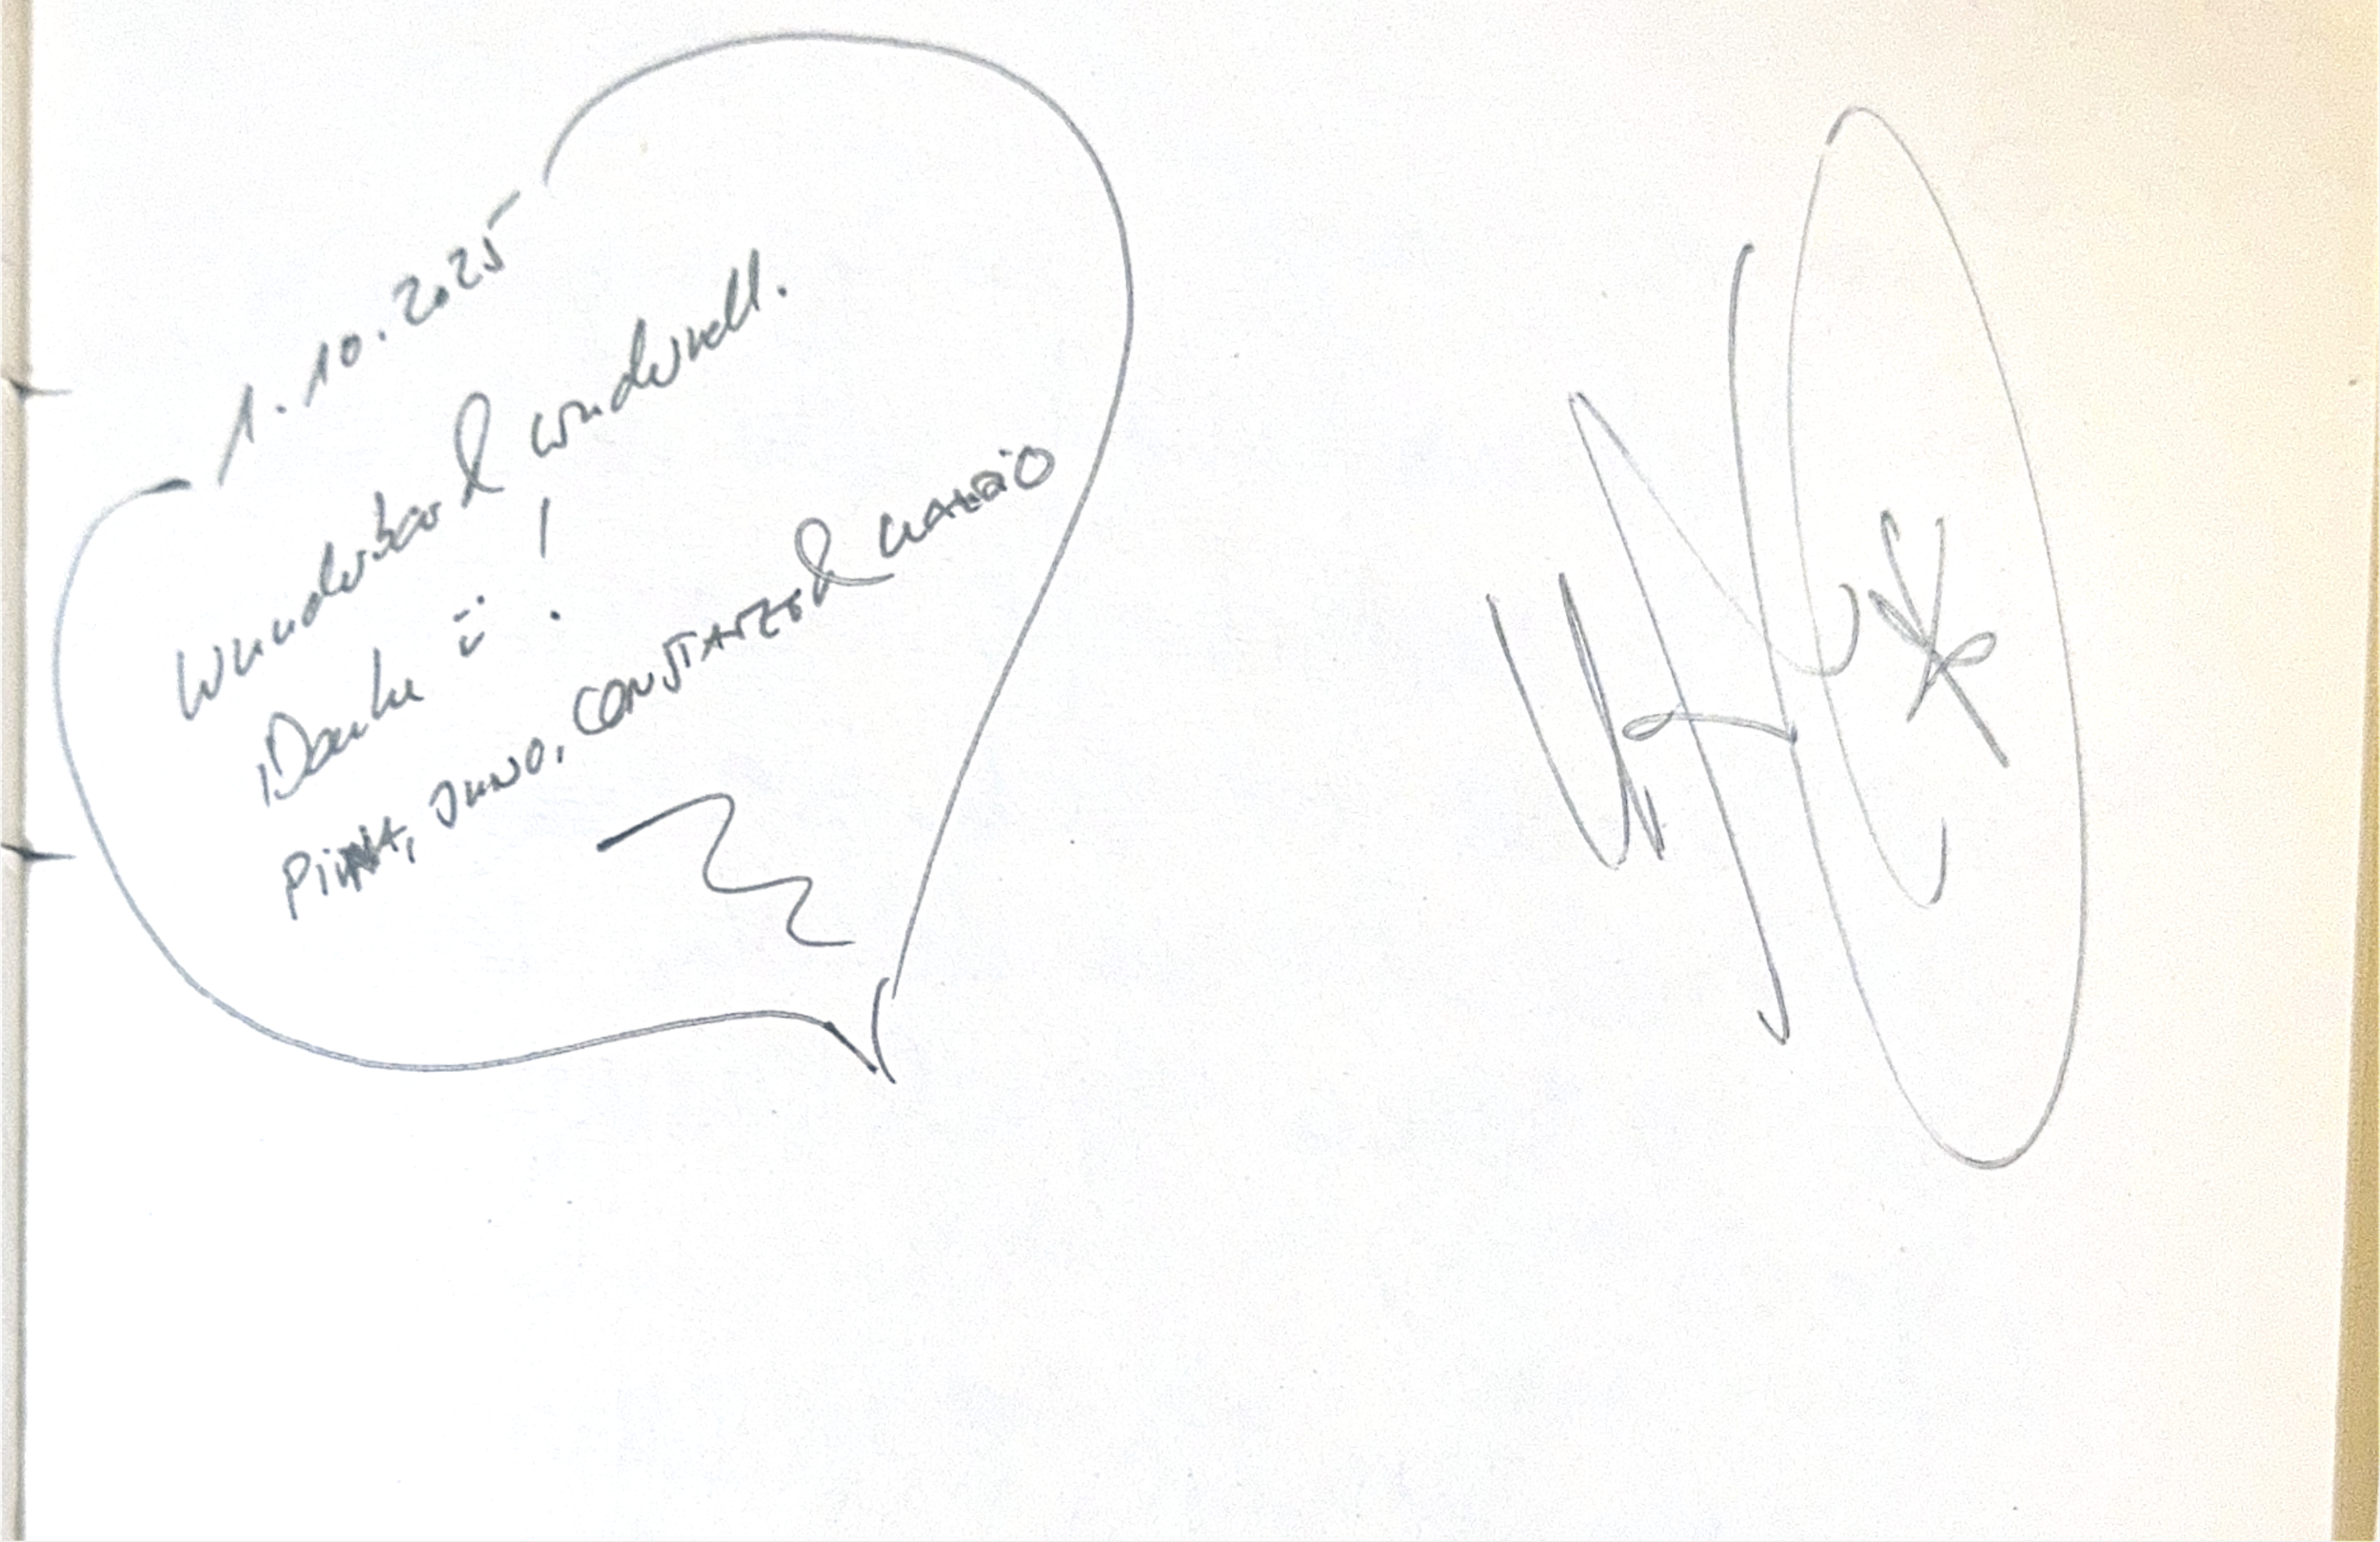 1.10.2025
Wunderbar & wundervoll.
Danke !
Juno, CONSTANZE &